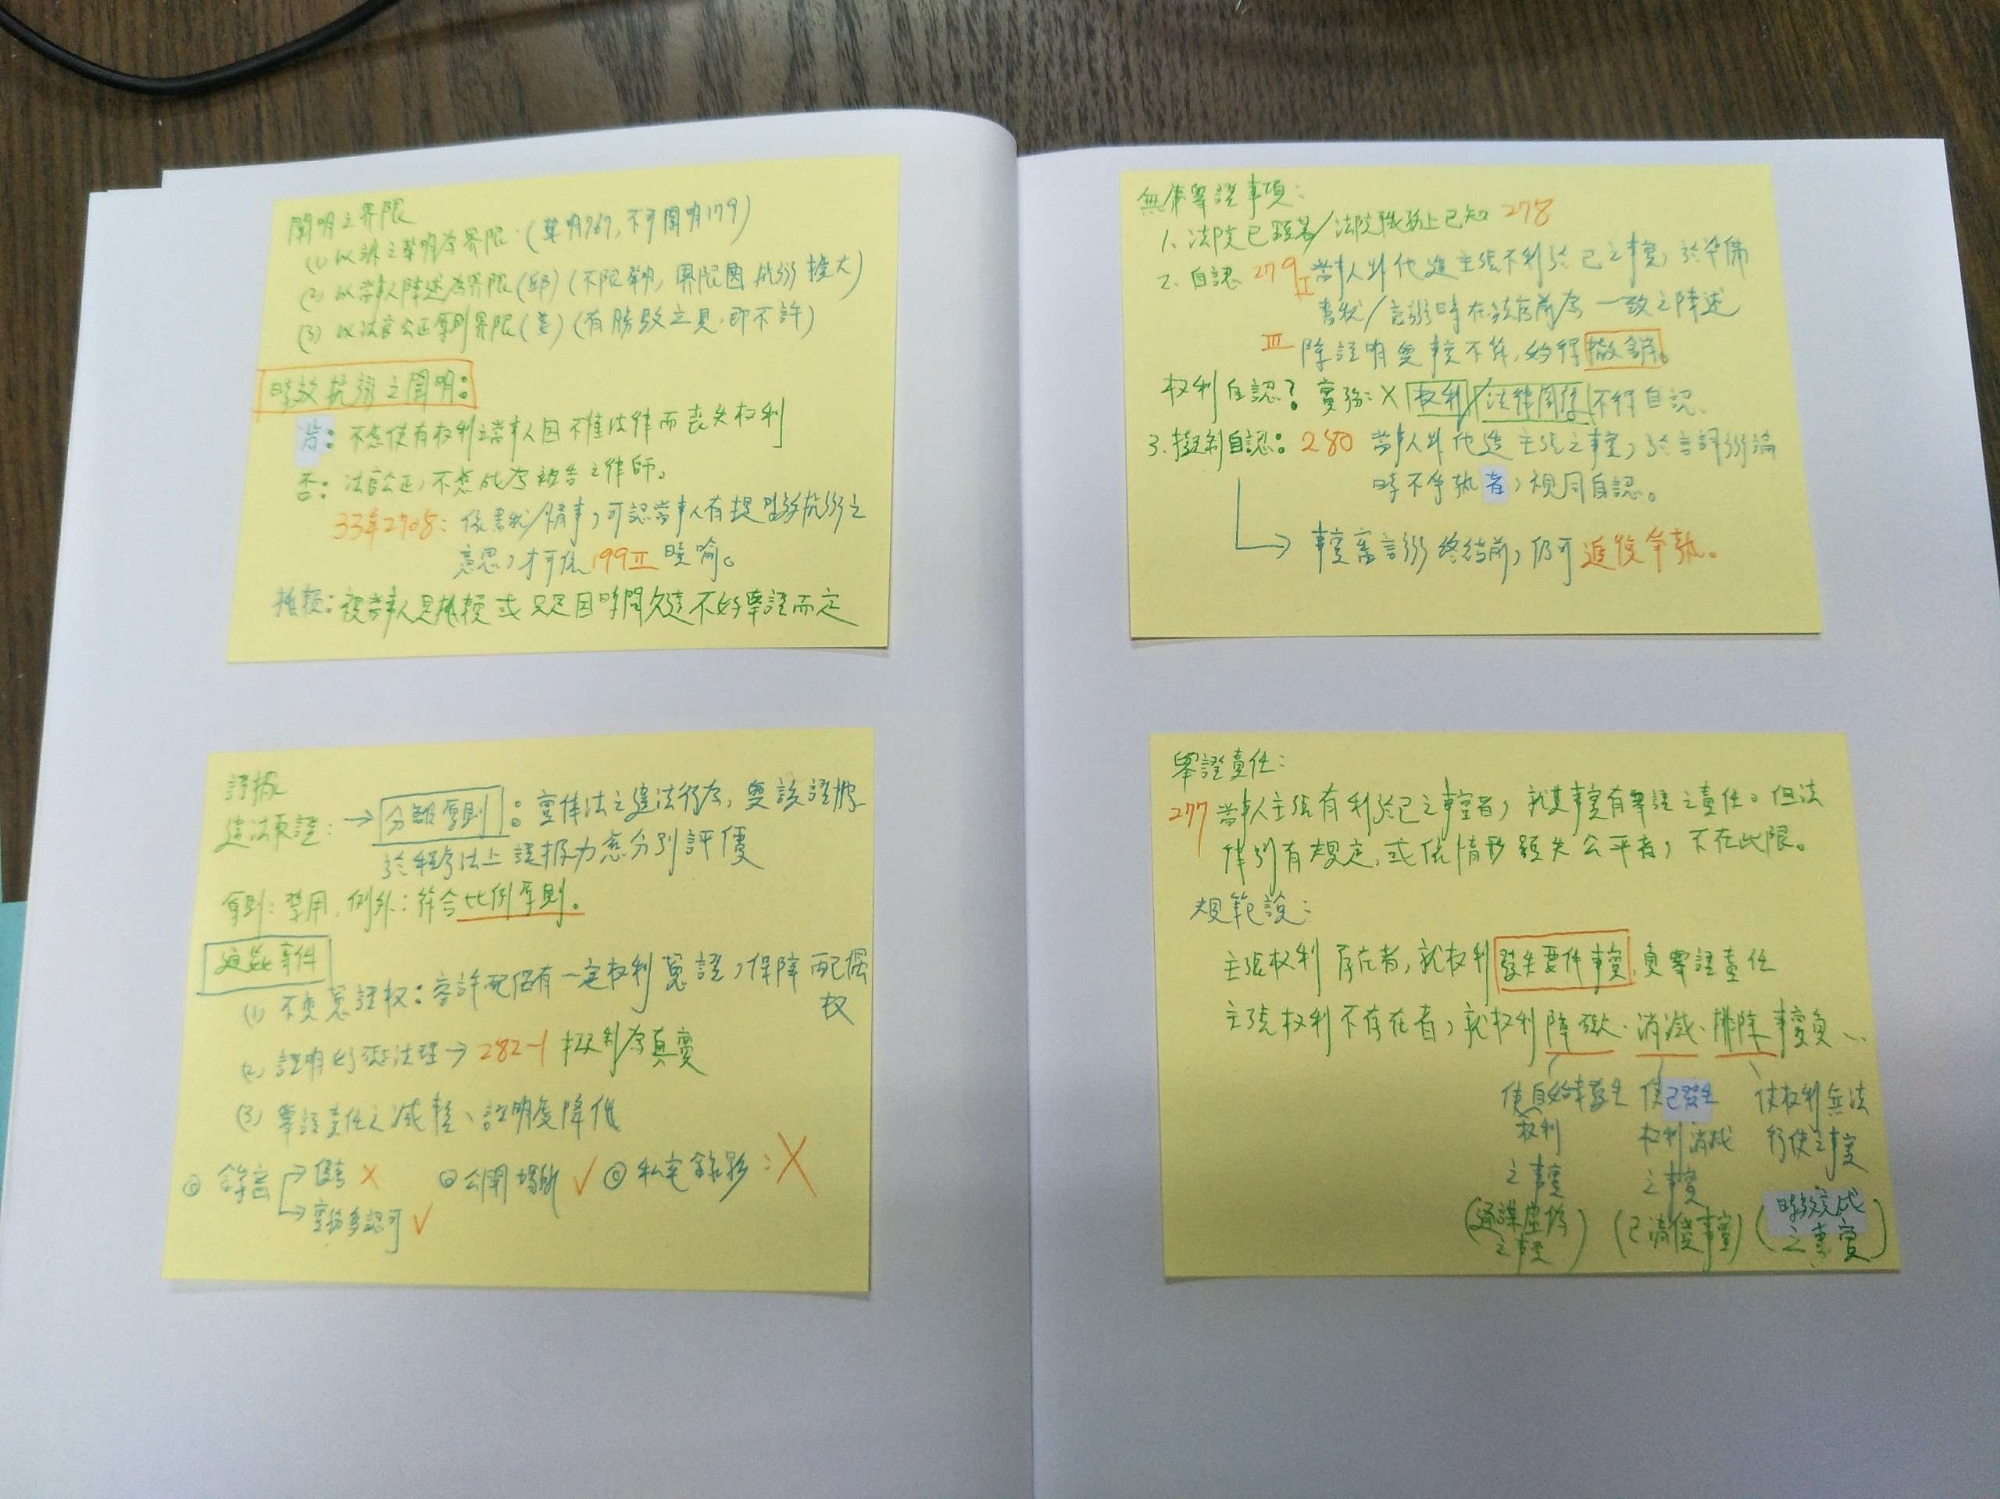 闡明之界限
(1) 以訴之聲明為界限 (聲明767, 不可闡明179)
(2) 以當事人陳述為界限 (邱) (不限聲明, 界限因抗辯擴大)
(3) 以法官公正原則界限 (姜) (有勝敗之見, 即不許)
時效抗辯之闡明:
肯: 不應使有權利之當事人因不懂法律而喪失權利
否: 法官公正, 不應成為被告之律師。
33年2708: 依書狀/情事, 可認當事人有提時效抗辯之
意思, 才可依199Ⅱ曉喻。
推賴: 視當事人是耍賴或只是因時間久遠不好舉證而定
證據
違法取證: → 分離原則: 實體法之違法行為, 與該證據
於程序法上證據力應分別評價
原則: 禁用, 例外: 符合比例原則。
通姦事件
(1) 不貞蒐證權: 容許配偶有一定權利蒐證, 保障配偶
權
(2) 證明妨礙法理 → 282-1 擬制為真實
(3) 舉證責任之減輕、證明度降低
① 錄音 → 偷錄 ✗ ② 公開場所 ✓ ③ 私宅錄影: ✗
→ 實務多認可 ✓
無庸舉證事項:
1. 法院已顯著/法院職務上已知 278
2. 自認 279Ⅰ 當事人對他造主張不利於己之事實, 於準備
書狀/言辯時在法官前為一致之陳述
Ⅲ 除證明與事實不符, 始得撤銷。
權利自認? 實務: ✗ 權利/法律關係不得自認、
3. 擬制自認: 280 當事人對他造主張之事實, 於言詞辯論
時不爭執者, 視同自認。
→ 事實審言辯終結前, 仍可追復爭執。
舉證責任:
277 當事人主張有利於己之事實者, 就其事實有舉證之責任。但法
律別有規定, 或依情形顯失公平者, 不在此限。
規範說:
主張權利存在者, 就權利發生要件事實, 負舉證責任
主張權利不存在者, 就權利障礙、消滅、排除事實負、、
使自始未發生 使已發生 使權利無法
權利 權利消滅 行使之事實
之事實 之事實
(通謀虛偽 (已清償事實) (時效完成
之事實) 之事實)